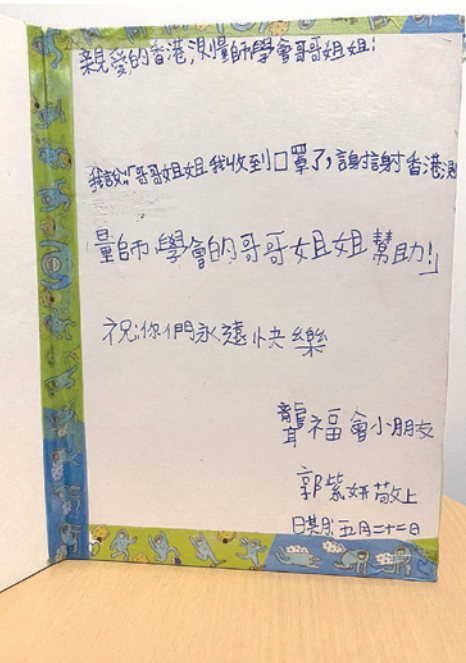 親愛的香港測量師學會哥哥姐姐:
我說:「哥哥姐姐我收到口罩了,謝謝香港測
量師學會的哥哥姐姐幫助!」
祝:你們永遠快樂
聾福會小朋友
郭紫妍敬上
日期:五月二十二日